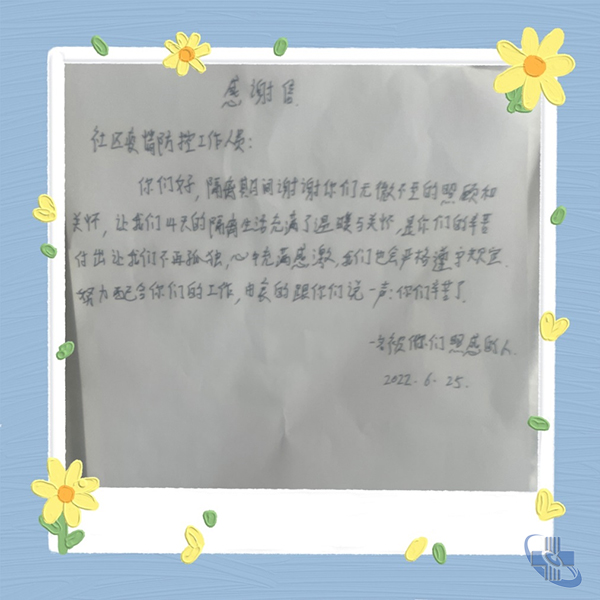 感谢信
社区疫情防控工作人员:
你们好,隔离期间谢谢你们无微不至的照顾和
关怀,让我们4天的隔离生活充满了温暖与关怀,是你们的辛苦
付出让我们不再孤独,心中充满感激,我们也会严格遵守规定.
努力配合你们的工作,由衷的跟你们说一声:你们辛苦了.
一名被你们照感的人.
2022.6.25.